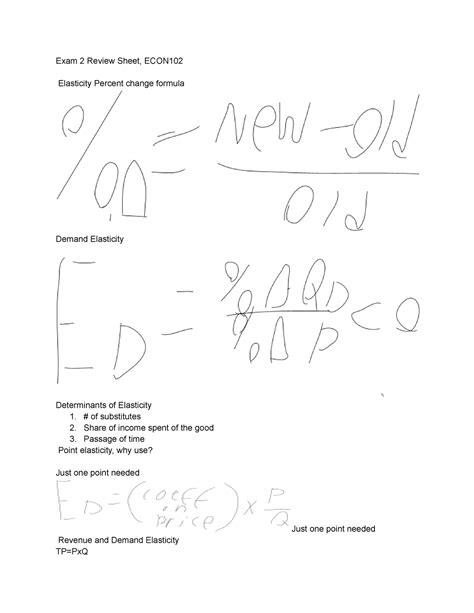 Exam 2 Review Sheet, ECON102
Elasticity Percent change formula
%Δ = New - Old
Old
Demand Elasticity
E_D = %Δ Q_D / %Δ P < 0
Determinants of Elasticity
1. # of substitutes
2. Share of income spent of the good
3. Passage of time
Point elasticity, why use?
Just one point needed
E_D = (coeff on price) x P/Q
Just one point needed
Revenue and Demand Elasticity
TP=PxQ